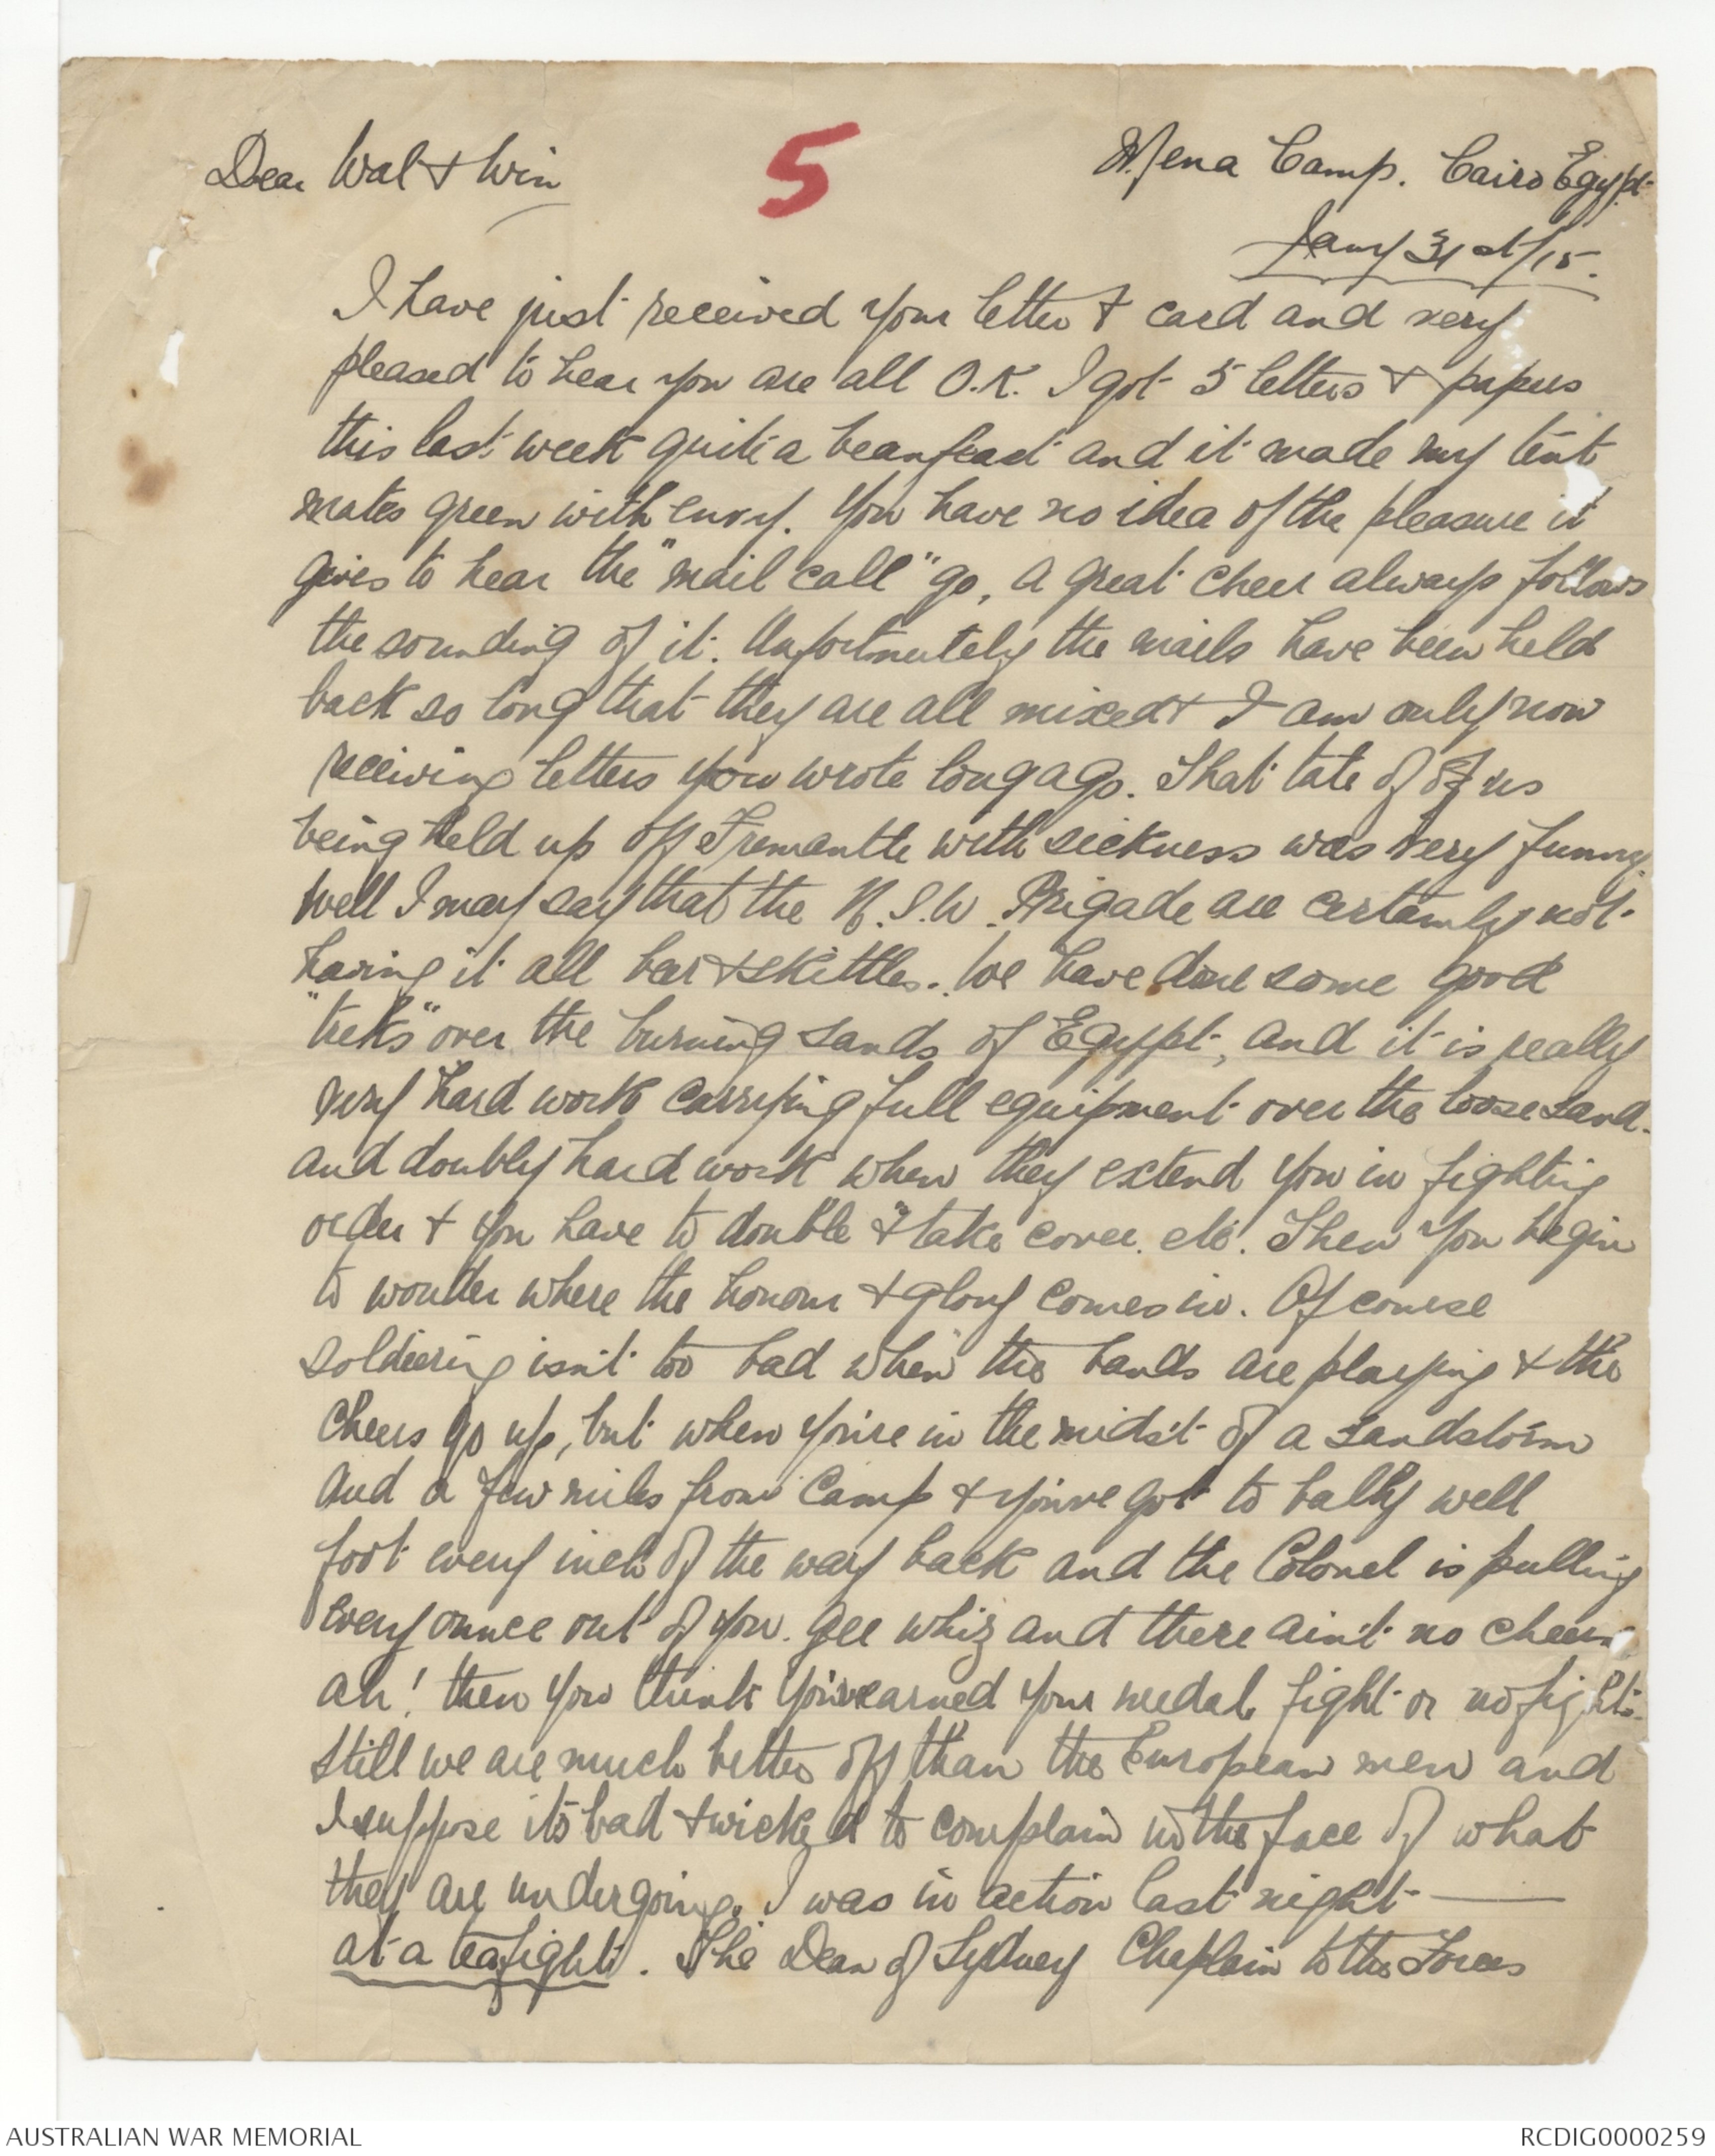 5
Mena Camp. Cairo Egypt
Jany 31st/15.
Dear Wal & Win
I have just received your letter & card and very
pleased to hear you are all O.K. I got 5 letters & papers
this last week quite a beanfeast and it made my tent
mates green with envy. You have no idea of the pleasure it
gives to hear the "mail call" go, a great cheer always follows
the sounding of it. Unfortunately the mails have been held
back so long that they are all mixed & I am only now
receiving letters you wrote long ago. That tale of of us
being held up off Fremantle with sickness was very funny.
Well I may say that the N.S.W. Brigade are certainly not
having it all beer & skittles. We have done some good
"treks" over the burning sands of Egypt, and it is really
very hard work carrying full equipment over the loose sand.
and doubly hard work when they extend you in fighting
order & you have to "double" & take cover etc. Then you begin
to wonder where the honour & glory comes in. Of course
soldiering isn't too bad when the bands are playing & the
cheers go up, but when you're in the midst of a sandstorm
and a few miles from Camp & you've got to bally well
foot every inch of the way back and the Colonel is pulling
every ounce out of you. Gee whiz and there ain't no cheers
ah! then you think you've earned your medal fight or no fight.
Still we are much better off than the European men and
I suppose its bad & wicked to complain in the face of what
they are undergoing. I was in action last night —
at a teafight. The Dean of Sydney Chaplain to the Forces
AUSTRALIAN WAR MEMORIAL
RCDIG0000259